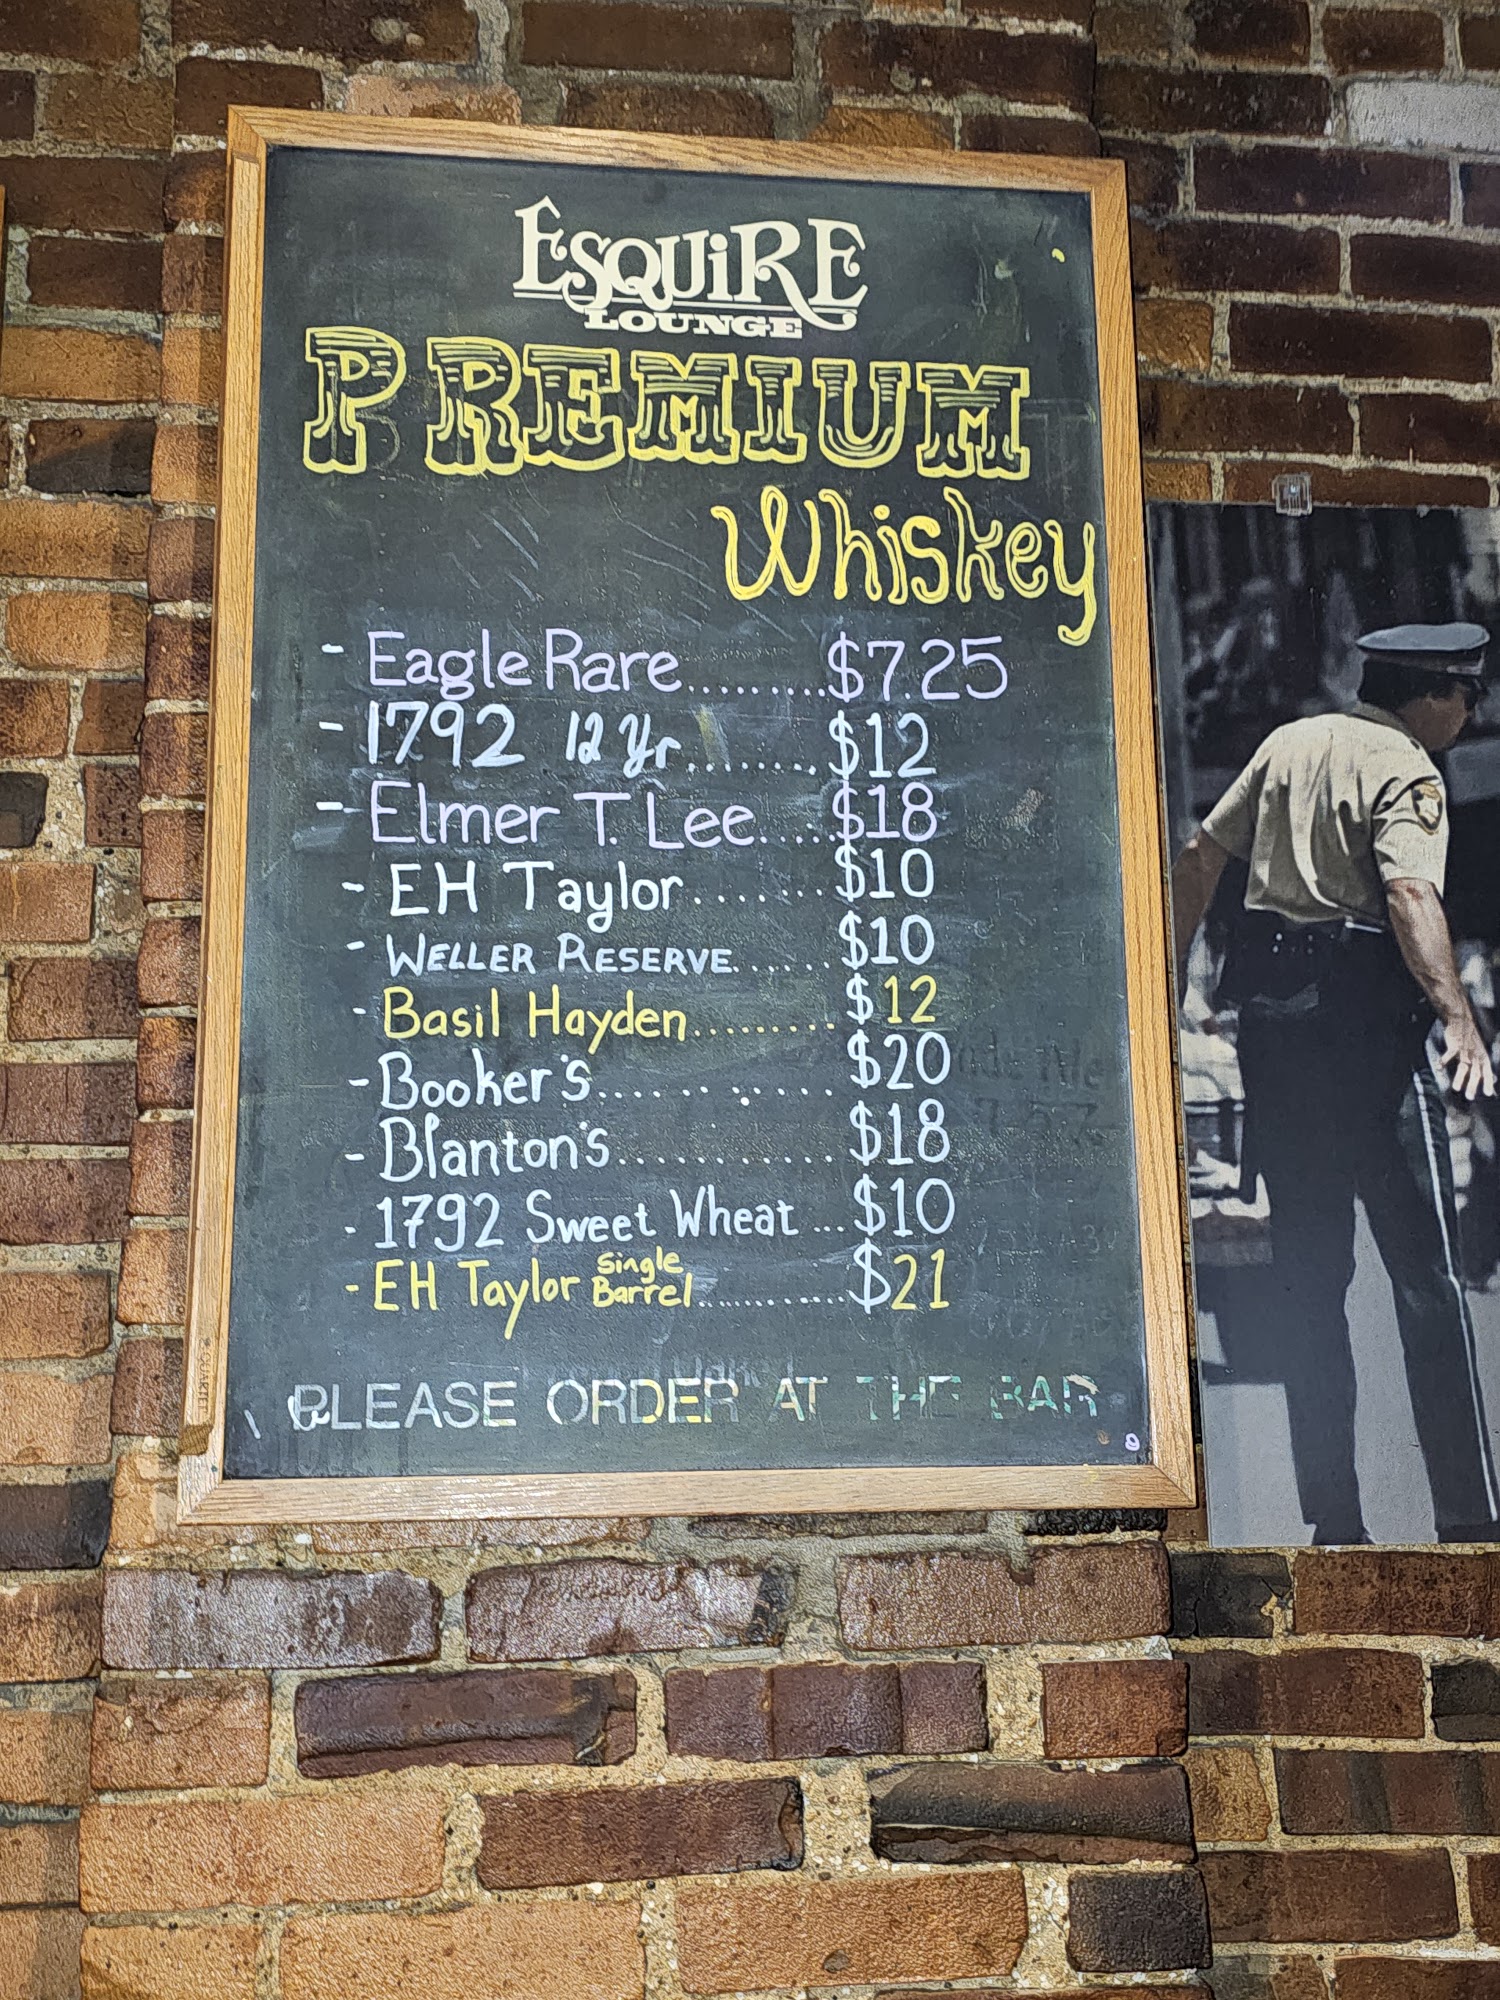 ESQUiRE
LOUNGE
PREMIUM
Whiskey
- Eagle Rare.........$7.25
- 1792 12 Yr........$12
- Elmer T. Lee.....$18
- EH Taylor.......$10
- WELLER RESERVE......$10
- Basil Hayden.........$12
- Booker's............$20
- Blanton's............$18
- 1792 Sweet Wheat...$10
- EH Taylor Single Barrel............$21
PLEASE ORDER AT THE BAR
QUARTET